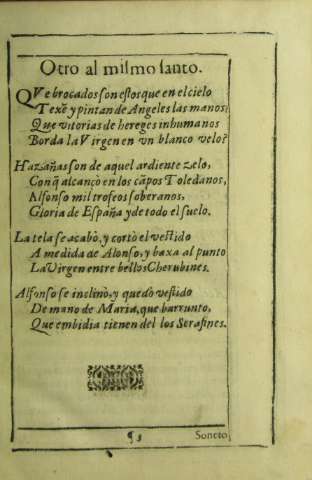 Otro al mismo santo.
QVe brocados son estos que en el cielo
Texẽ y pintan de Angeles las manos?
Que vitorias de hereges inhumanos
Borda la Virgen en vn blanco velo?
Hazañas son de aquel ardiente zelo,
Con q̃ alcançò en los cãpos Toledanos,
Alfonso mil trofeos soberanos,
Gloria de España y de todo el suelo.
La tela se acabò, y cortò el vestido
A medida de Alonso, y baxa al punto
La Virgen entre bellos Cherubines.
Alfonso se inclinò, y quedò vestido
De mano de Maria, que barrunto,
Que embidia tienen del los Serafines.
¶3 Soneto